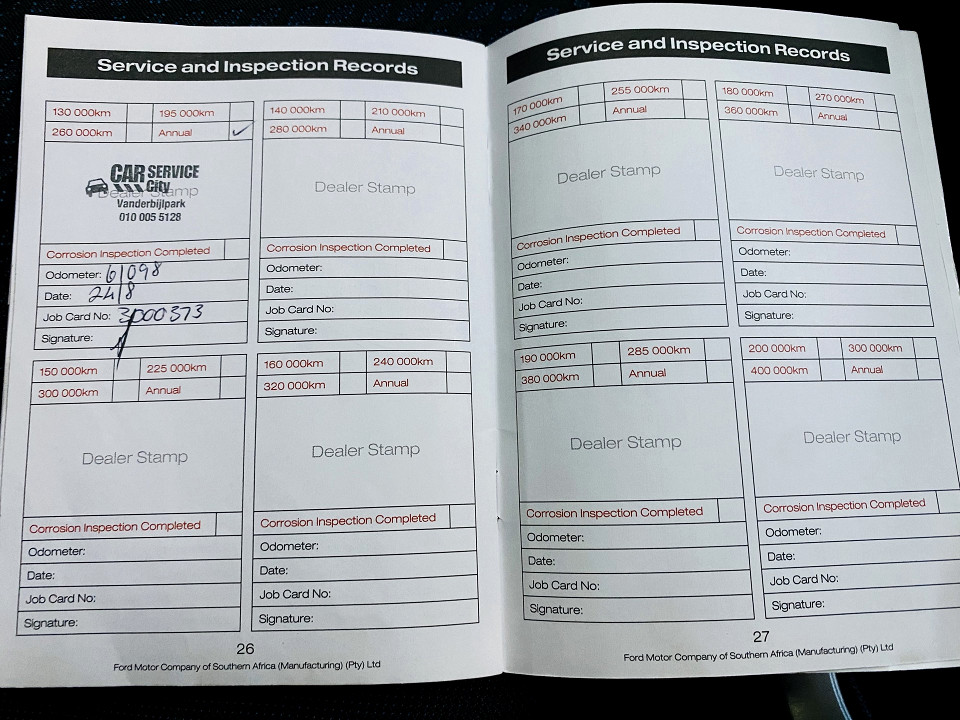 Service and Inspection Records
130 000km 195 000km
260 000km Annual ✓
CAR SERVICE
City
Dealer Stamp
Vanderbijlpark
010 005 5128
Corrosion Inspection Completed
Odometer: 61098
Date: 24/8
Job Card No: 3000373
Signature:
140 000km 210 000km
280 000km Annual
Dealer Stamp
Corrosion Inspection Completed
Odometer:
Date:
Job Card No:
Signature:
150 000km 225 000km
300 000km Annual
Dealer Stamp
Corrosion Inspection Completed
Odometer:
Date:
Job Card No:
Signature:
160 000km 240 000km
320 000km Annual
Dealer Stamp
Corrosion Inspection Completed
Odometer:
Date:
Job Card No:
Signature:
26
Ford Motor Company of Southern Africa (Manufacturing) (Pty) Ltd
Service and Inspection Records
170 000km 255 000km
340 000km Annual
Dealer Stamp
Corrosion Inspection Completed
Odometer:
Date:
Job Card No:
Signature:
180 000km 270 000km
360 000km Annual
Dealer Stamp
Corrosion Inspection Completed
Odometer:
Date:
Job Card No:
Signature:
190 000km 285 000km
380 000km Annual
Dealer Stamp
Corrosion Inspection Completed
Odometer:
Date:
Job Card No:
Signature:
200 000km 300 000km
400 000km Annual
Dealer Stamp
Corrosion Inspection Completed
Odometer:
Date:
Job Card No:
Signature:
27
Ford Motor Company of Southern Africa (Manufacturing) (Pty) Ltd